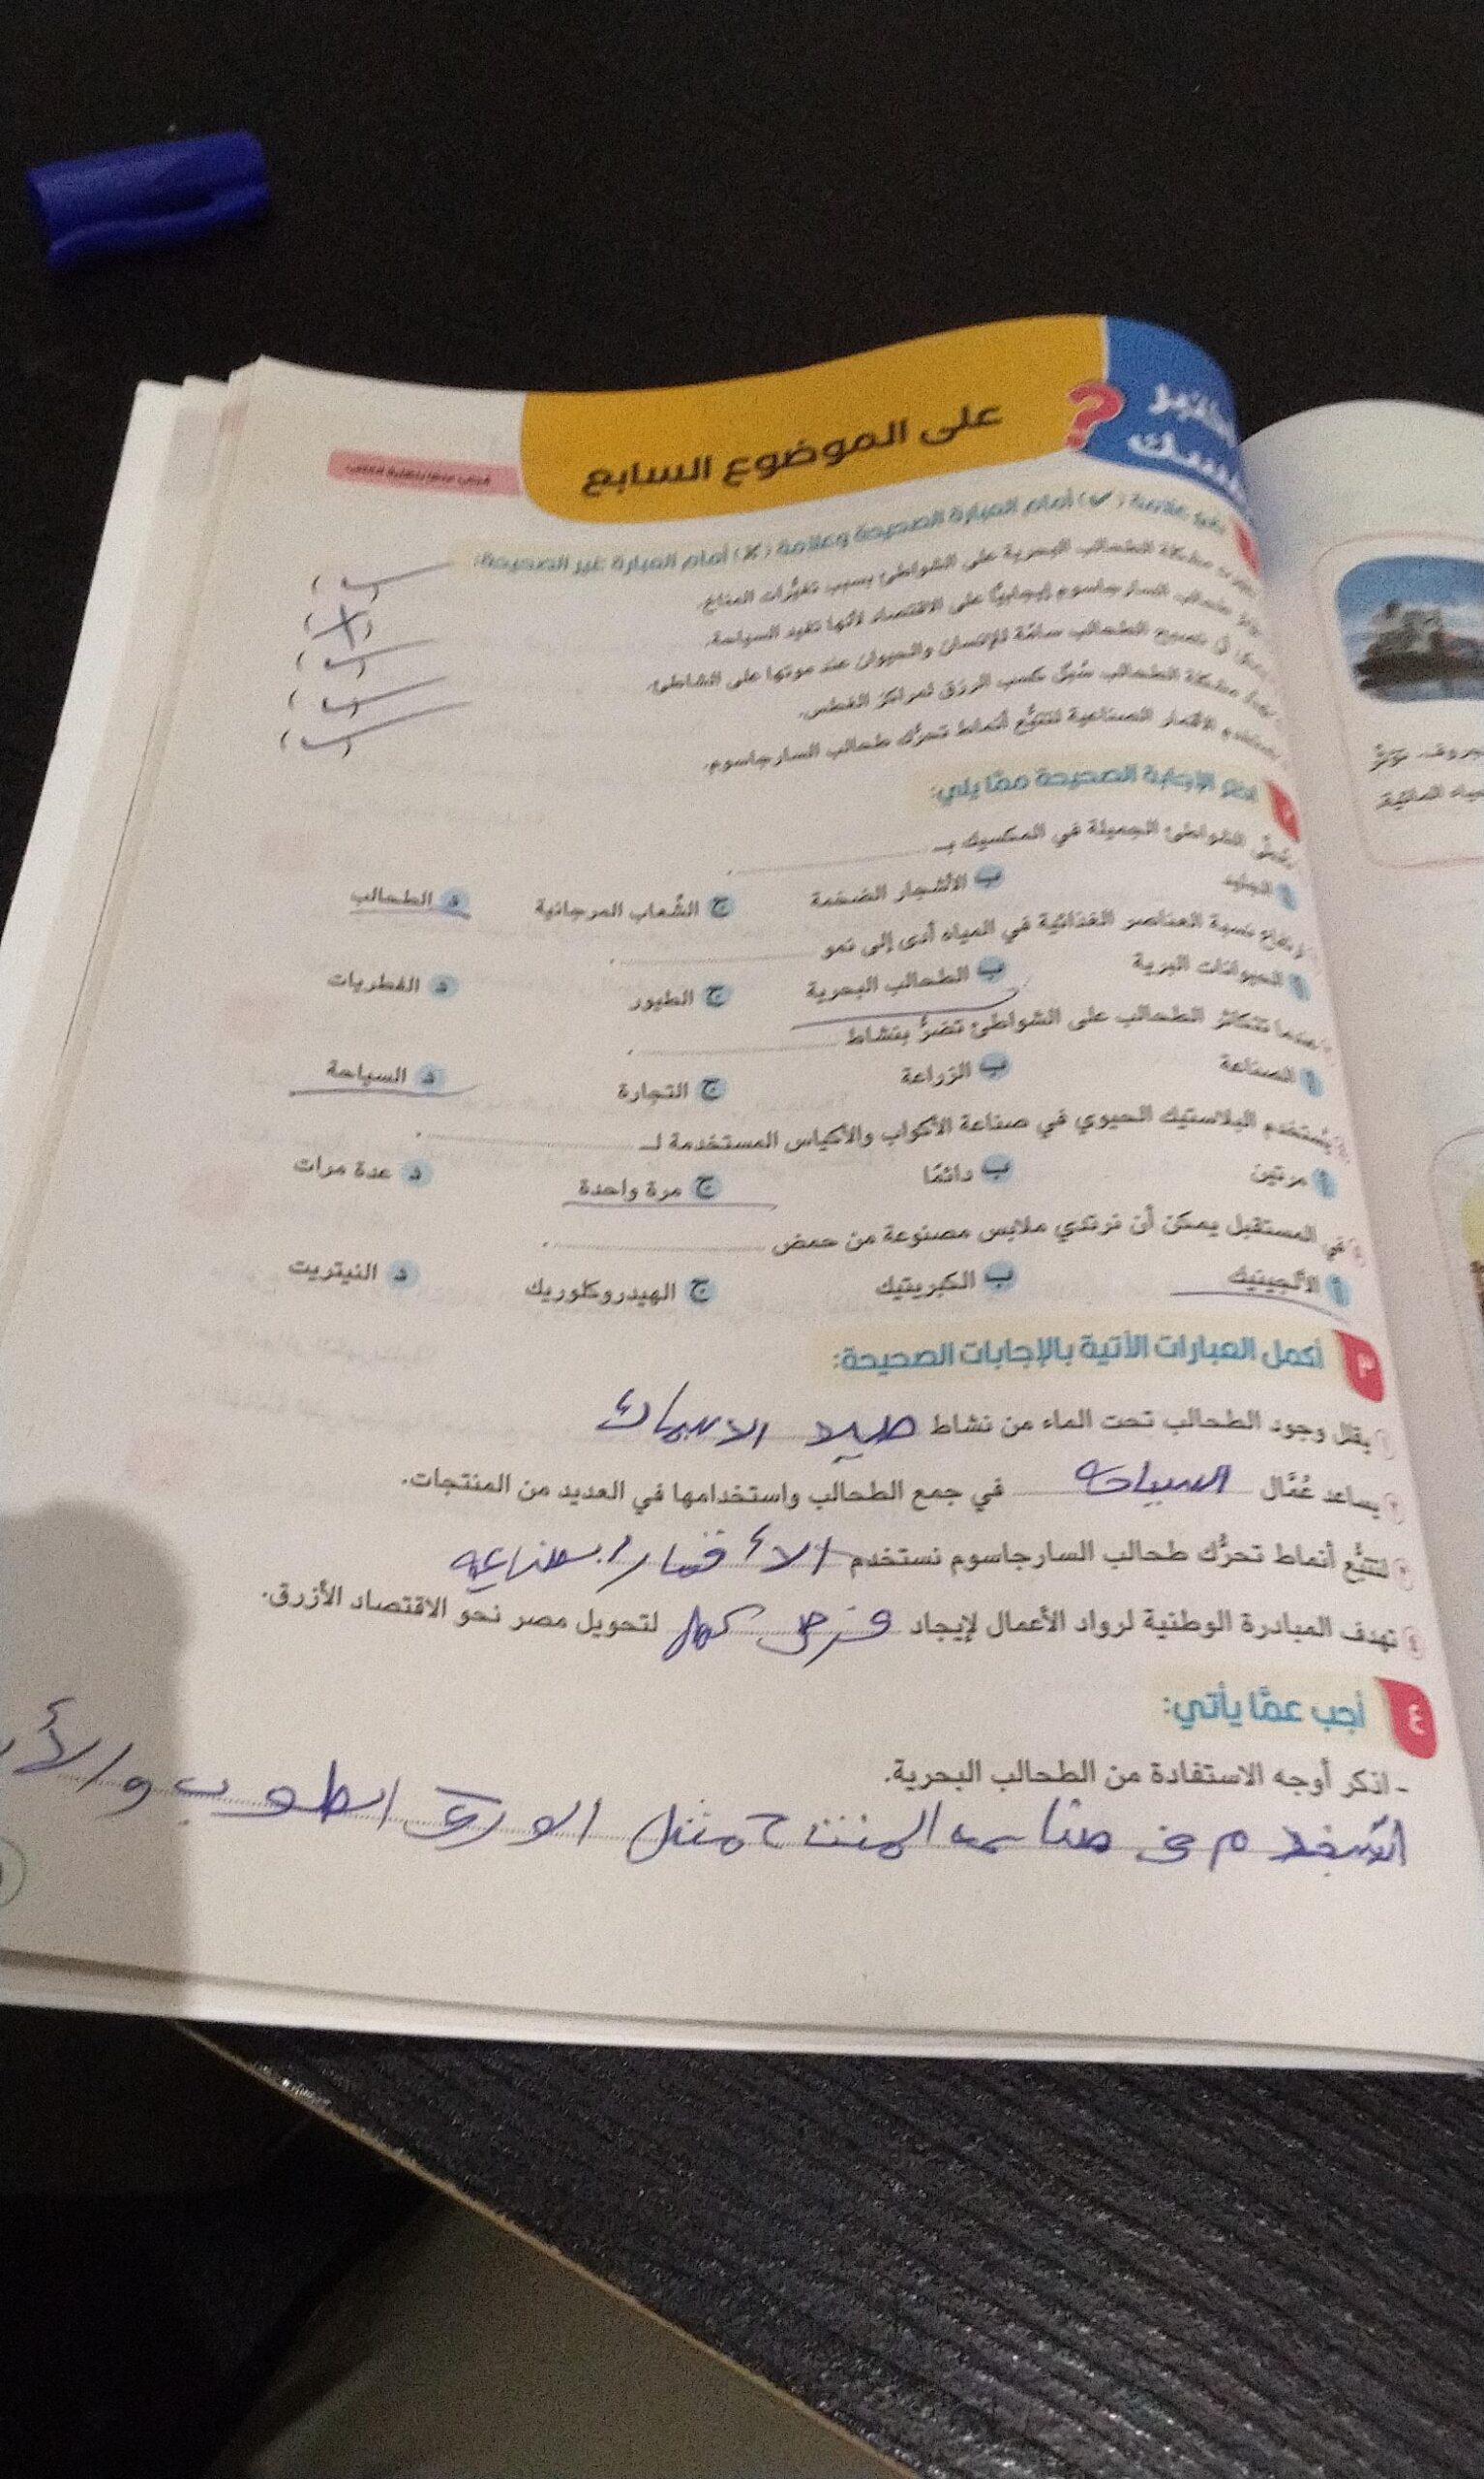 على الموضوع السابع
؟
علامة (✓) أمام العبارة الصحيحة وعلامة (✗) أمام العبارة غير الصحيحة:
مشكلة الطحالب البحرية على الشواطئ بسبب تغيُّرات المناخ. (✓)
طحالب السارجاسوم إيجابيًّا على الاقتصاد لأنها تفيد السياحة. (✗)
أن تصبح الطحالب سامَّة للإنسان والحيوان عند موتها على الشاطئ. (✓)
مشكلة الطحالب سُبل كسب الرزق لمراكز الغطس. (✓)
الأقمار الصناعية لتتبُّع أنماط تحرُّك طحالب السارجاسوم. (✓)
الإجابة الصحيحة ممَّا يلي:
الشواطئ الجميلة في المكسيك بـ
أ الجليد ب الأشجار الضخمة ج الشُّعاب المرجانية د الطحالب
نسبة العناصر الغذائية في المياه أدى إلى نمو
أ الحيوانات البرية ب الطحالب البحرية ج الطيور د الفطريات
عندما تتكاثر الطحالب على الشواطئ تضرُّ بنشاط
أ الصناعة ب الزراعة ج التجارة د السياحة
يُستخدم البلاستيك الحيوي في صناعة الأكواب والأكياس المستخدمة لـ
أ مرتين ب دائمًا ج مرة واحدة د عدة مرات
٥ في المستقبل يمكن أن نرتدي ملابس مصنوعة من حمض
أ الألجينيك ب الكبريتيك ج الهيدروكلوريك د النيتريت
٣ أكمل العبارات الآتية بالإجابات الصحيحة:
١ يقلل وجود الطحالب تحت الماء من نشاط صيد الاسماك
٢ يساعد عُمَّال السياحه في جمع الطحالب واستخدامها في العديد من المنتجات.
٣ لتتبُّع أنماط تحرُّك طحالب السارجاسوم نستخدم الأقمار
٤ تهدف المبادرة الوطنية لرواد الأعمال لإيجاد فرص عمل لتحويل مصر نحو الاقتصاد الأزرق.
٤ أجب عمَّا يأتي:
- اذكر أوجه الاستفادة من الطحالب البحرية.
مثل الورق الطوب